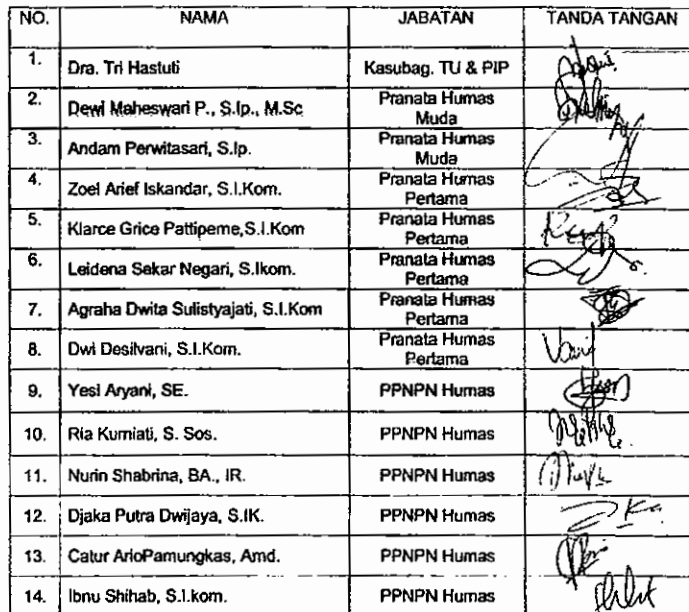 NO. NAMA JABATAN TANDA TANGAN
1. Dra. Tri Hastuti Kasubag. TU & PIP
2. Dewi Maheswari P., S.Ip., M.Sc Pranata Humas Muda
3. Andam Perwitasari, S.Ip. Pranata Humas Muda
4. Zoel Arief Iskandar, S.I.Kom. Pranata Humas Pertama
5. Klarce Grice Pattipeme,S.I.Kom Pranata Humas Pertama
6. Leidena Sekar Negari, S.Ikom. Pranata Humas Pertama
7. Agraha Dwita Sulistyajati, S.I.Kom Pranata Humas Pertama
8. Dwi Desilvani, S.I.Kom. Pranata Humas Pertama
9. Yesi Aryani, SE. PPNPN Humas
10. Ria Kurniati, S. Sos. PPNPN Humas
11. Nurin Shabrina, BA., IR. PPNPN Humas
12. Djaka Putra Dwijaya, S.IK. PPNPN Humas
13. Catur ArioPamungkas, Amd. PPNPN Humas
14. Ibnu Shihab, S.I.kom. PPNPN Humas